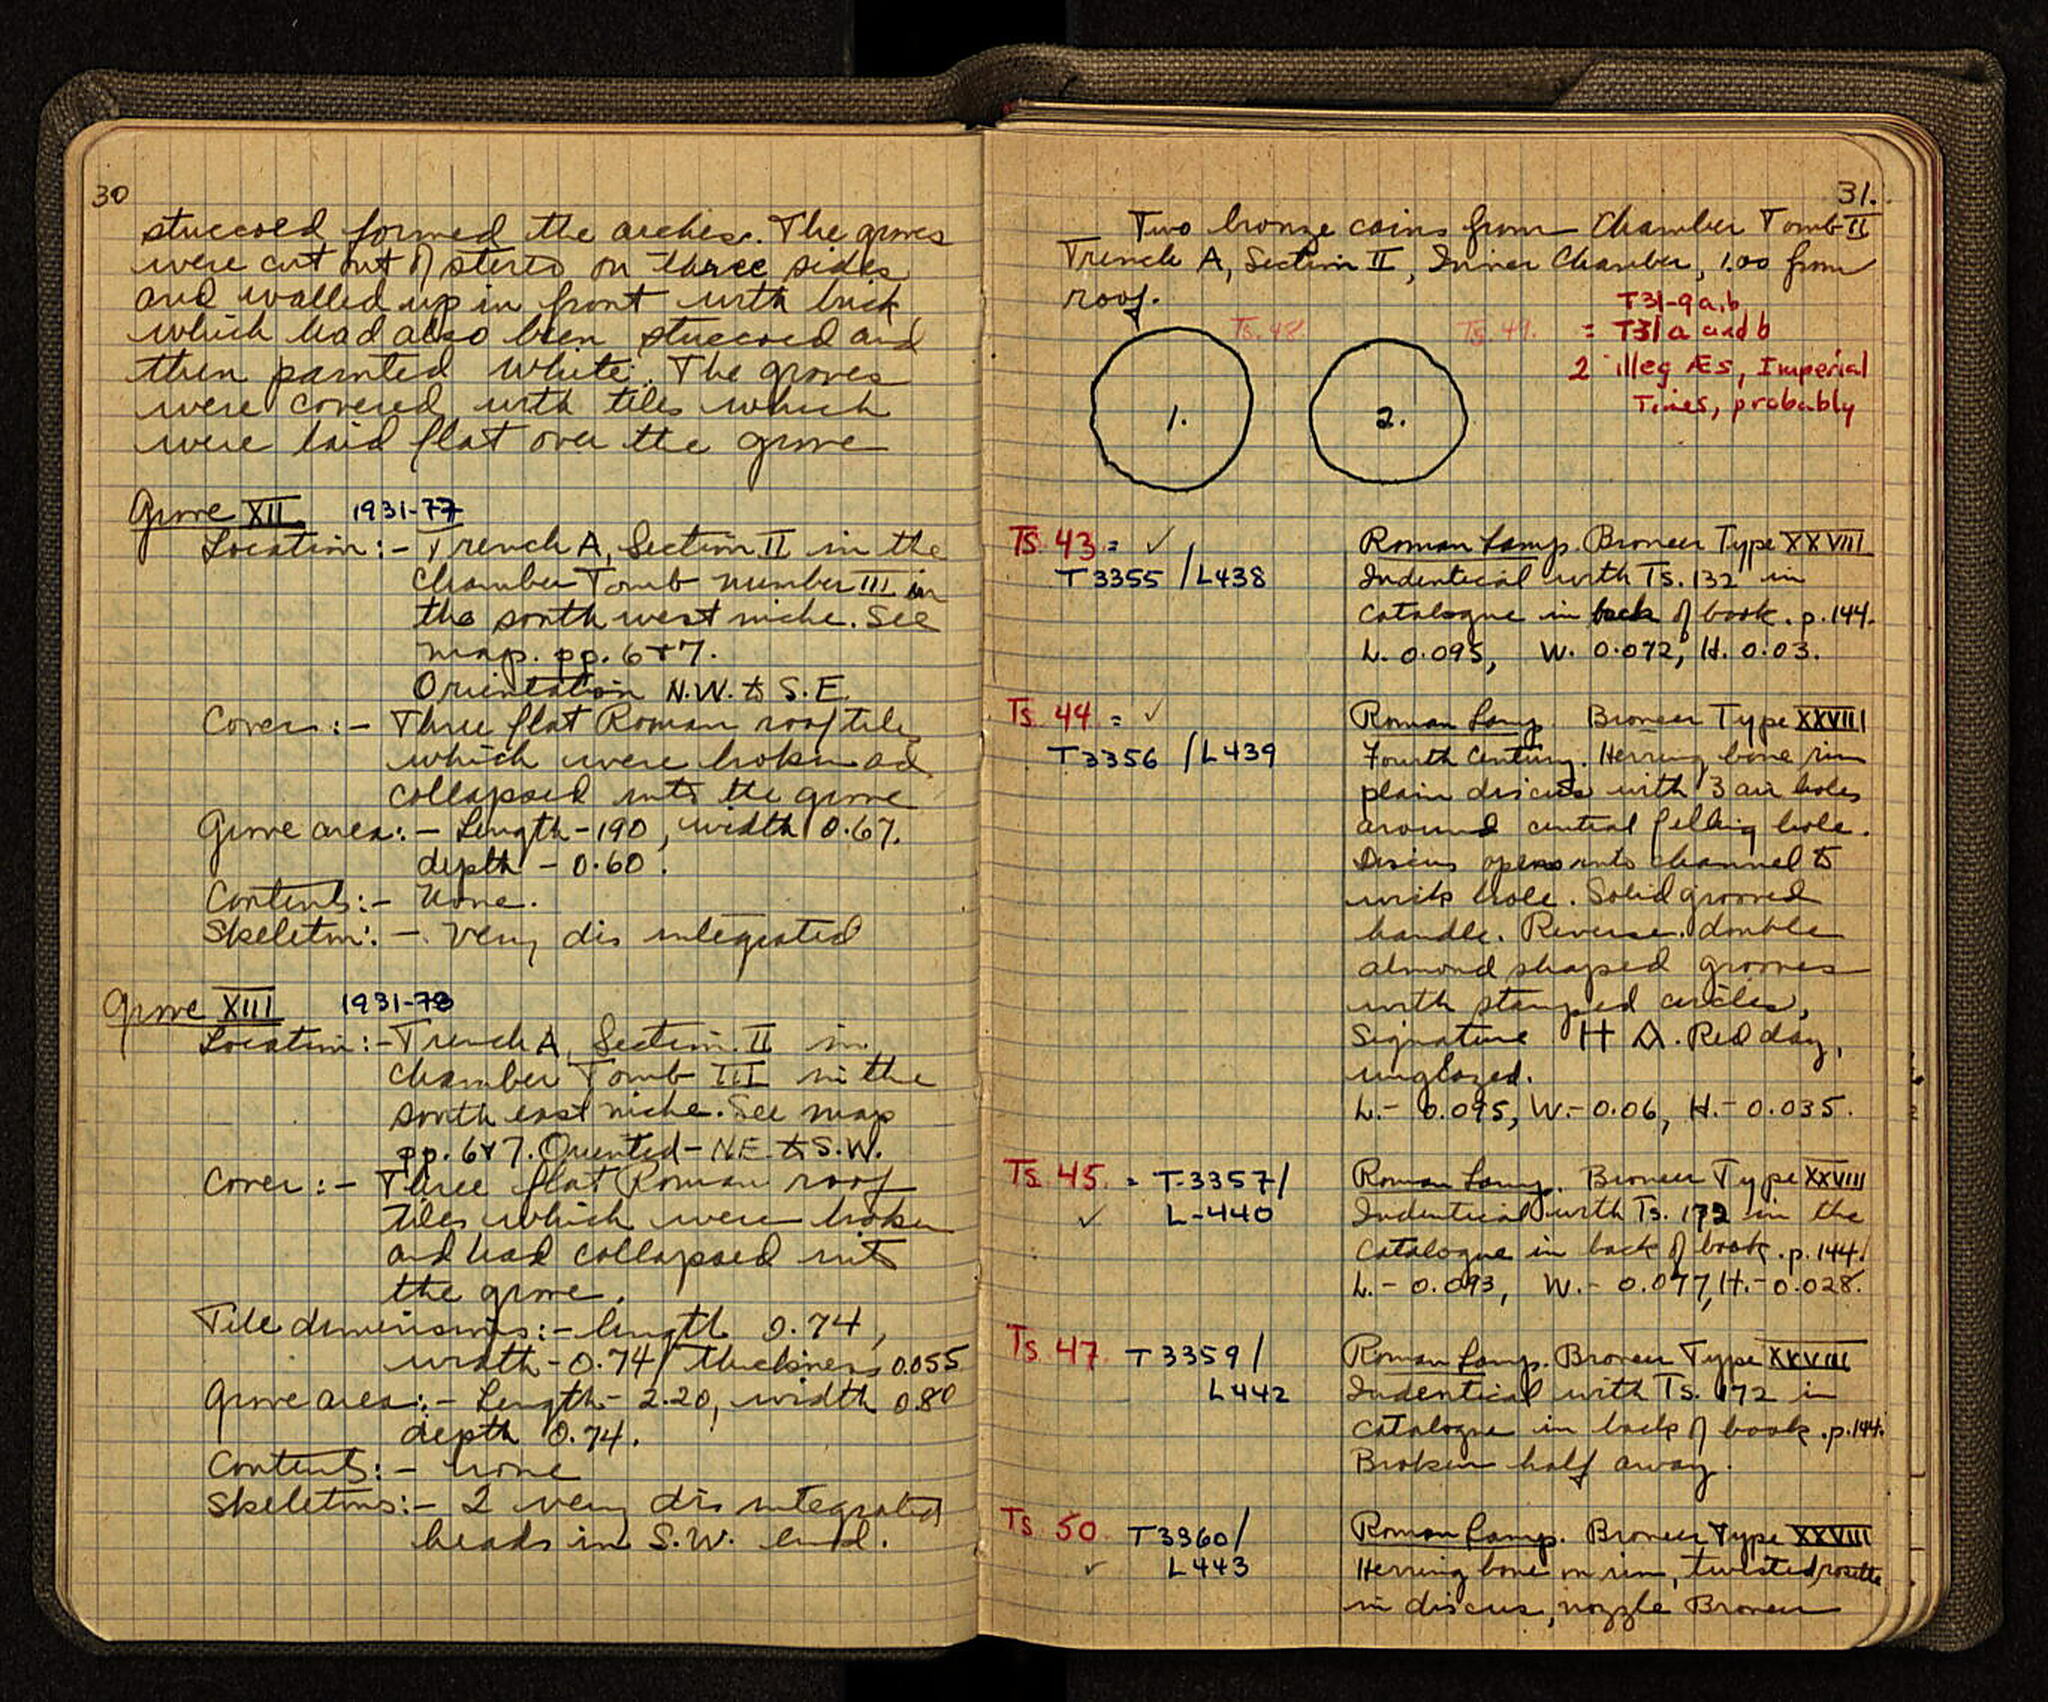 30
stuccoed formed the arches. The graves
were cut out of stereo on three sides
and walled up in front with brick
which had also been stuccoed and
then painted white. The graves
were covered with tiles which
were laid flat over the grave
Grave XII 1931-77
Location:- Trench A, Section II in the
Chamber Tomb number III in
the south west niche. See
map. pp. 6+7.
Orientation N.W. to S.E.
Cover:- Three flat Roman roof tiles
which were broken ad
collapsed into the grave
Grave area:- Length-190, width 0.67.
depth - 0.60.
Contents:- None.
Skeleton:- Very dis integrated
Grave XIII 1931-78
Location:- Trench A, Section II in
Chamber Tomb III in the
south east niche. See map
pp. 6+7. Oriented- N.E. to S.W.
Cover:- Three flat Roman roof
tiles which were broken
and had collapsed into
the grave.
Tile dimensions:- length 0.74,
width-0.74, thickness 0.055
Grave area:- Length- 2.20, width 0.80
depth 0.74.
Contents:- none
Skeletons:- 2 very dis integrated
heads in S.W. end.
31.
Two bronze coins from Chamber Tomb II
Trench A, Section II, Inner Chamber, 1.00 from
roof.
Ts. 48. Ts. 49.
T31-9a,b
= T31a and b
2 illeg Æs, Imperial
Times, probably
1. 2.
Ts. 43 = ✓
T3355 / L438
Roman Lamp. Broneer Type XXVIII
Indentical with Ts. 132 in
catalogue in back of book. p.144.
L. 0.095, W. 0.072, H. 0.03.
Ts. 44 = ✓
T3356 / L439
Roman Lamp. Broneer Type XXVIII
Fourth Century. Herring bone rim
plain discus with 3 air holes
around central filling hole.
Discus opens into channel to
wick hole. Solid grooved
handle. Reverse. double
almond shaped grooves
with stamped circles,
Signature H Δ. Red clay,
unglazed.
L.- 0.095, W.- 0.06, H.- 0.035.
Ts. 45. = T-3357/
✓ L-440
Roman Lamp. Broneer Type XXVIII
Indentical with Ts. 172 in the
catalogue in back of book. p.144.
L.- 0.093, W.- 0.077, H.- 0.028.
Ts. 47 T3359/
L442
Roman Lamp. Broneer Type XXVIII
Indentical with Ts. 172 in
catalogue in back of book. p.144.
Broken half away.
Ts 50. T3360/
✓ L443
Roman Lamp. Broneer Type XXVIII
Herring bone on rim, twisted rosette
in discus, nozzle Broneer